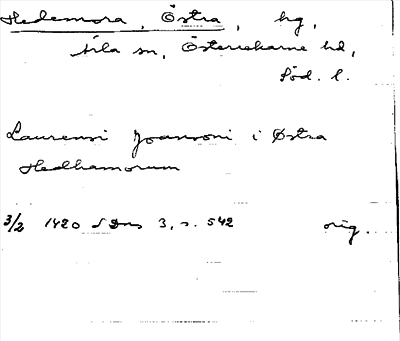 Hedemora, Östra, hg,
Årla sn, Österrekarne hd,
Söd. l.
Laurensi Joansoni i Østra
Hedhamorum
3/2 1420 SDns 3, s. 542 orig.